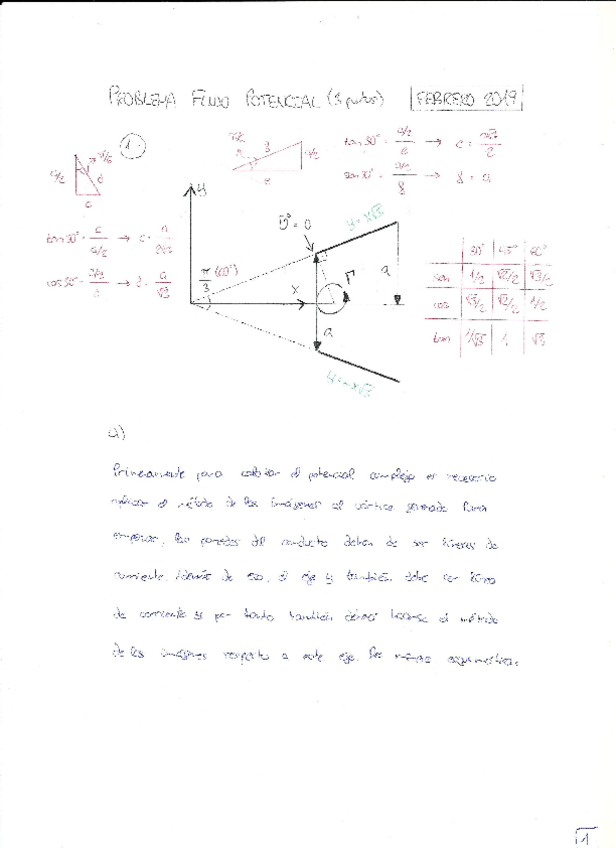 PROBLEMA FLUJO POTENCIAL (3 puntos) FEBRERO 2019
1.
tan30° = (a/2)/e → e = a√3/2
tan30° = → g = a
y
U° = 0
y = x√3
π/3 (60°)
x
Γ
a
a
y = -x√3
tan30° = c/(a/2) → c = a/2√3
cos30° = (a/2)/d → d = a/√3
30° 45° 60°
sen 1/2 √2/2 √3/2
cos √3/2 √2/2 1/2
tan 1/√3 1 √3
a)
Primeramente para calcular el potencial complejo es necesario
aplicar el método de las imágenes al vórtice generado. Para
empezar, las paredes del conducto deben de ser líneas de
corriente. Además de eso, el eje y también debe ser línea
de corriente y por tanto también deberá hacerse el método
de las imágenes respecto a este eje. Por mera
1